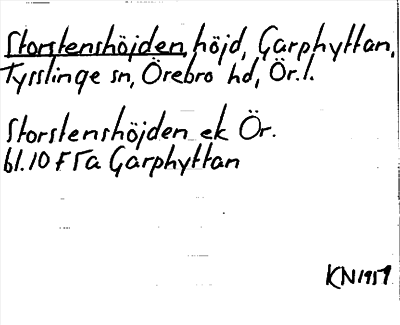 Storstenshöjden, höjd, Garphyttan,
Tysslinge sn, Örebro hd, Ör.l.
Storstenshöjden ek Ör.
bl.10 F5a Garphyttan
KN1957